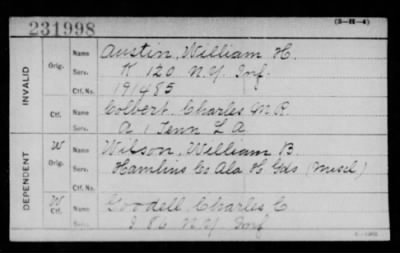 231998 (3-H-4)
INVALID
Orig. Name Austin, William H.
Serv. K 120 N.Y. Inf.
Ctf. No. 191485
Ctf. Name Colbert, Charles M.P.
Serv. A 1 Tenn L A
DEPENDENT
W Orig. Name Wilson, William B.
Serv. Hamlins Co Ala H Gds (Miscl)
Ctf. No.
W Ctf. Name Goodell, Charles C.
Serv. I 86 N.Y. Inf